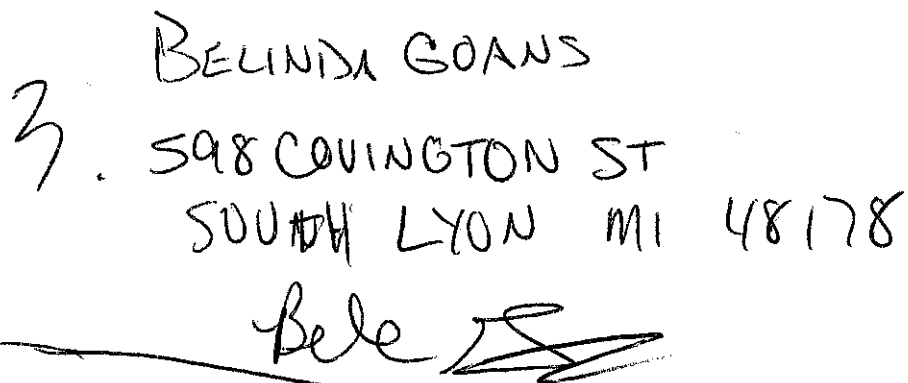 BELINDA GOANS
3. 598 COVINGTON ST
SOUTH LYON MI 48178